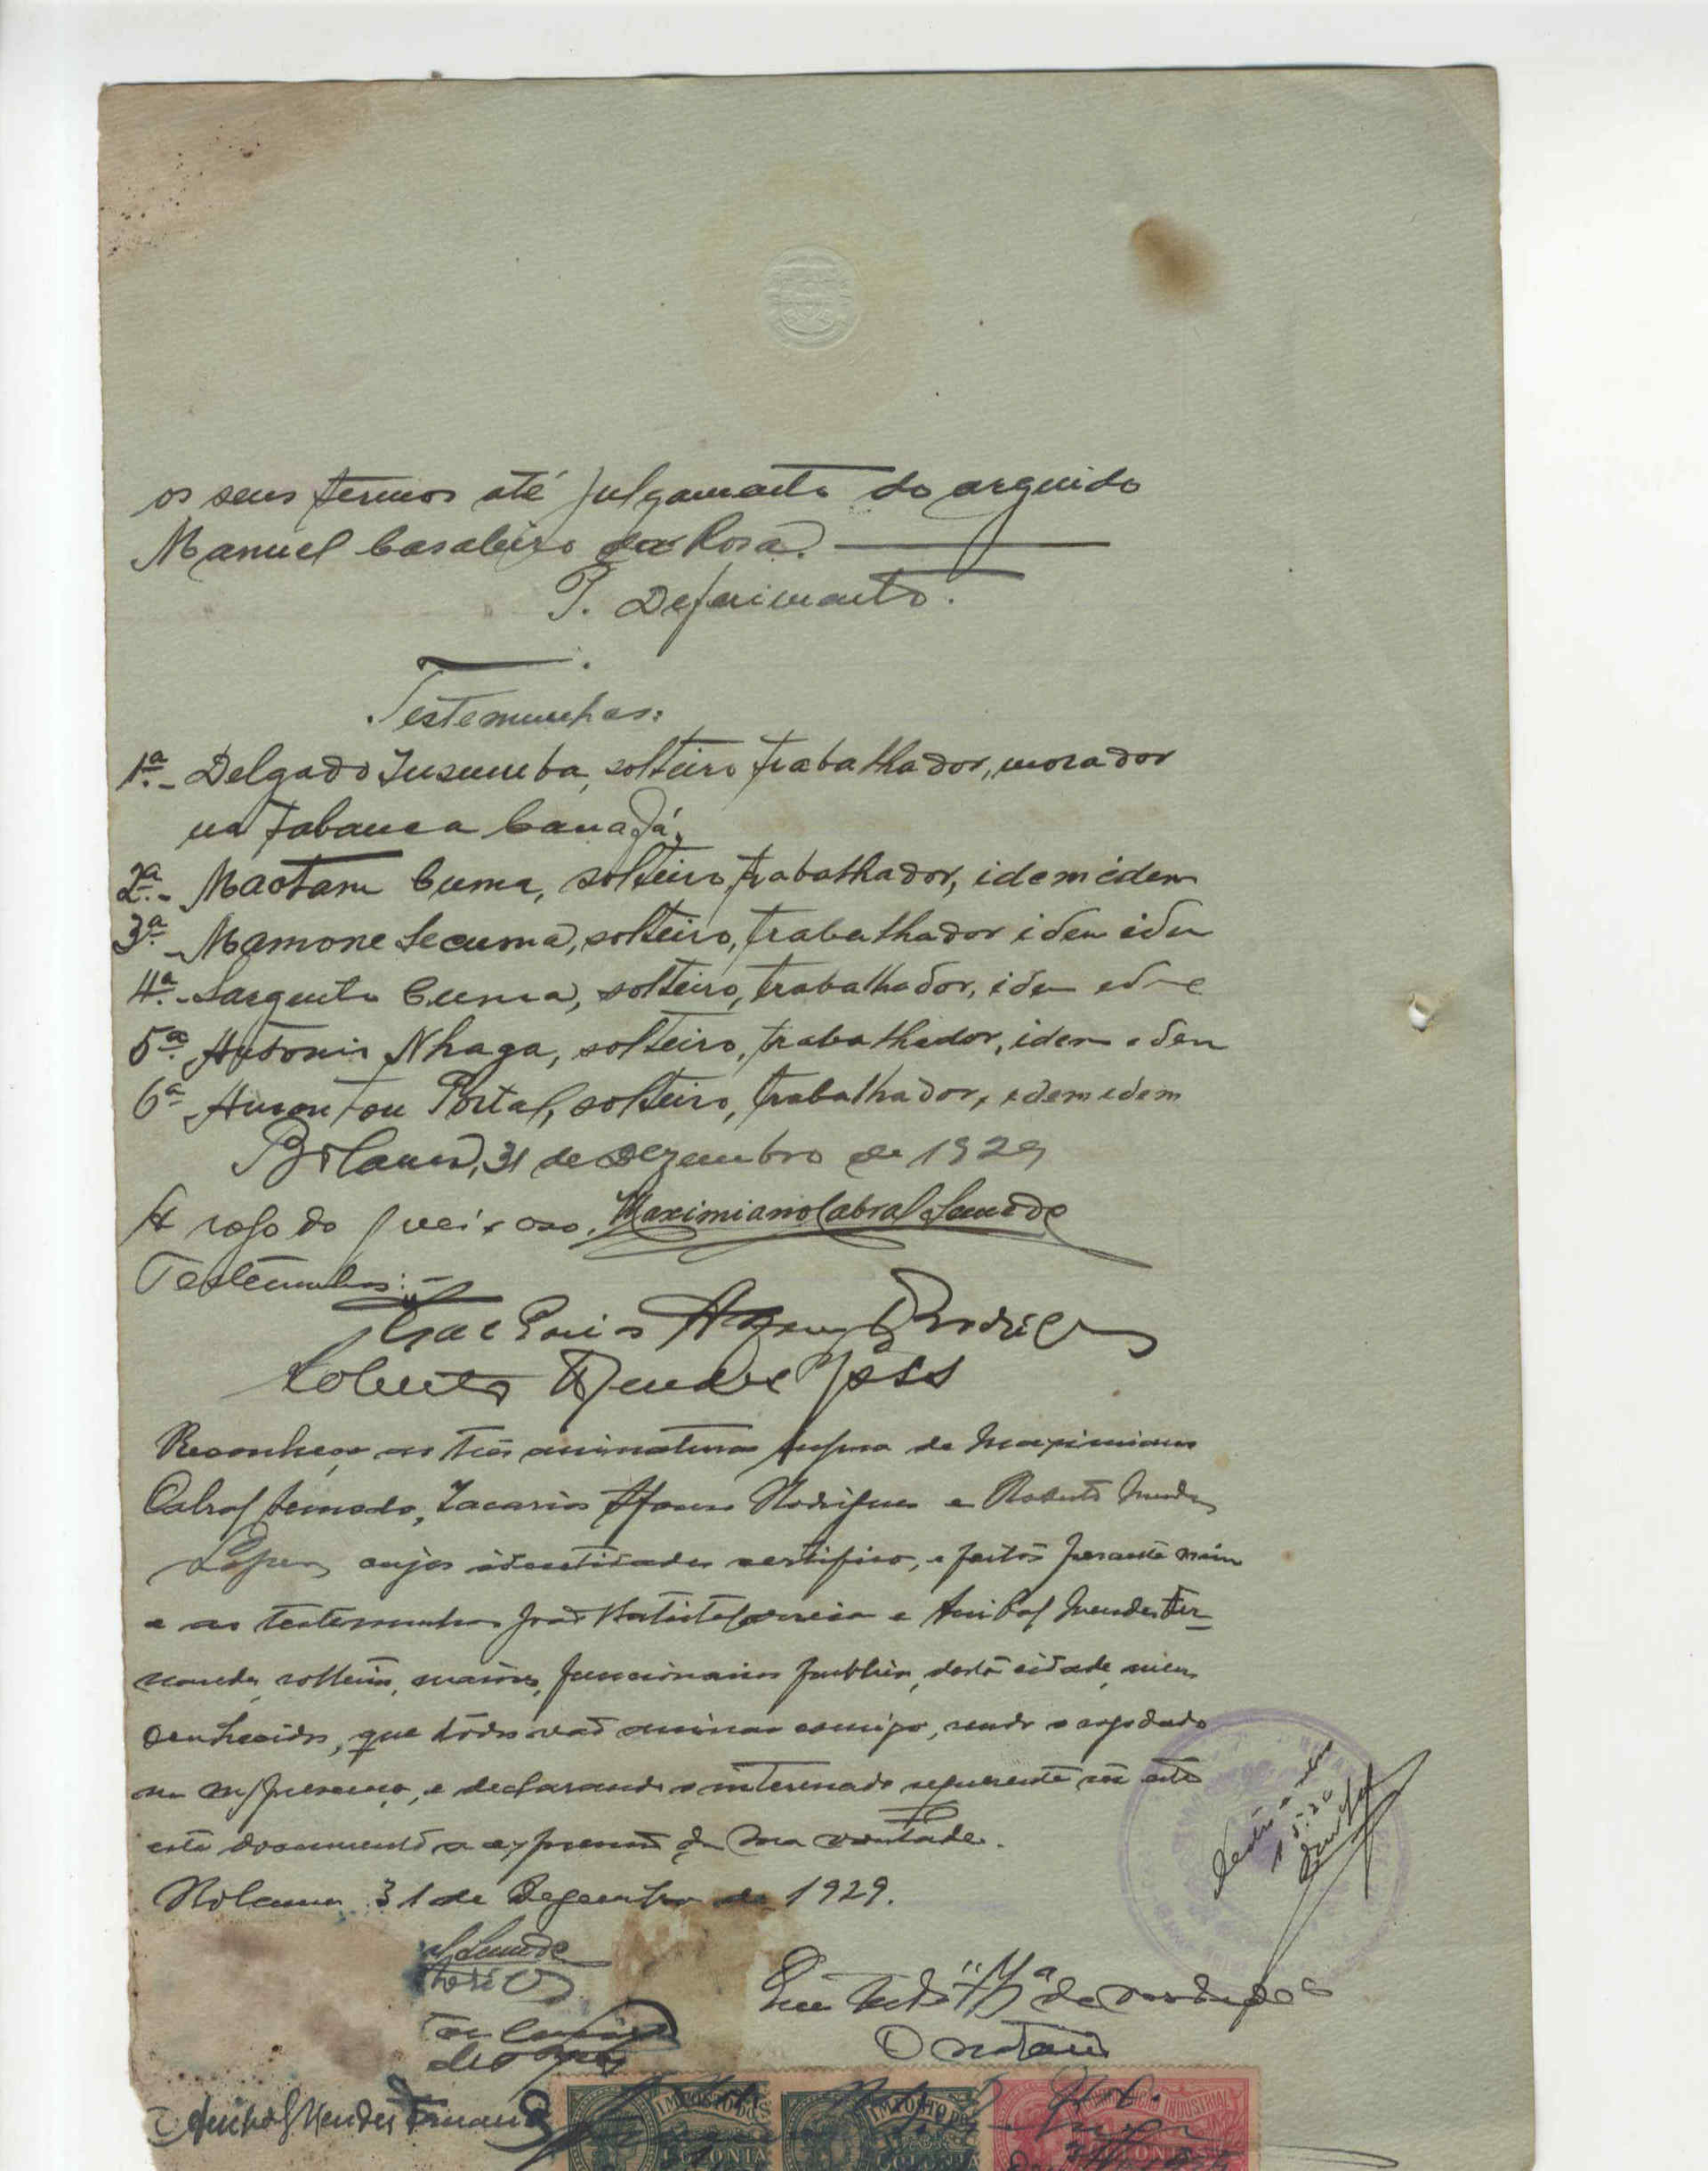 os seus termos até julgamento do arguido
Manuel Casaleiro da Rosa.
P. Deferimento.
Testemunhas:
1ª - Delgado Insumba, solteiro, trabalhador, morador
na tabanca Canajá.
2ª - Maotam Cuma, solteiro, trabalhador, idem idem
3ª - Mamone Secuma, solteiro, trabalhador idem idem
4ª - Sargento Cuma, solteiro, trabalhador, idem
5ª - António Nhaga, solteiro, trabalhador, idem idem
6ª - Portal, solteiro, trabalhador, idem idem
Bolama, 31 de Dezembro de 1929
A rogo do queixoso, Maximiano Cabral Semedo
Testemunhas: -
Rodrigues
Roberto Mendes Lopes
Reconheço as três assinaturas supra de Maximiano
Cabral Semedo, Zacarias Afonso Rodrigues e Roberto Mendes
Lopes, cujas identidades certifico, e feitas perante mim
e as testemunhas João Batista Correia e Anibal Mendes Fer-
nandes, solteiros, maiores, funcionarios publicos, desta cidade, meus
conhecidos, que todos vão assinar comigo, sendo o rogo dado
na m/presença, e declarando o interessado requerente ser este
este documento a expressão da sua vontade.
Bolama 31 de Dezembro de 1929.
Semedo
O notario
Anibal Mendes Fernandes
IMPOSTO DO S
IMPOSTO DO S
CONTRIBUIÇÃO INDUSTRIAL
COLONIA
COLONIA